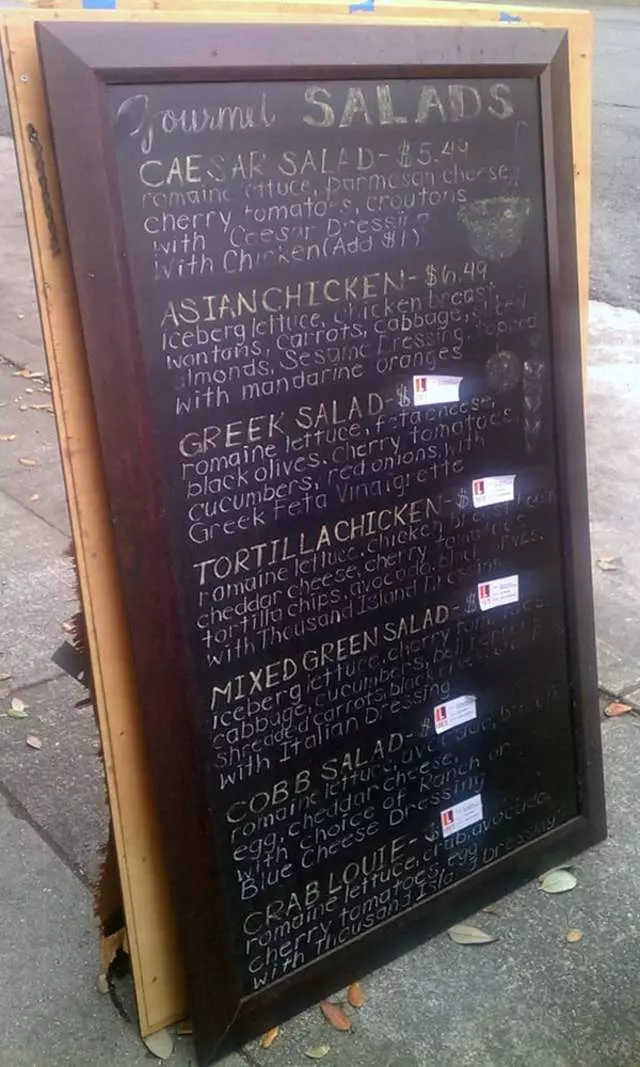 Gourmet SALADS
CAESAR SALAD - $5.49
romaine lettuce, parmesan cheese,
cherry tomatoes, croutons
with Ceesar Dressing
With Chicken (Add $1)
ASIAN CHICKEN - $6.49
iceberg lettuce, chicken breast,
wontans, carrots, cabbage, sliced
almonds, Sesame Dressing topped
with mandarine oranges
GREEK SALAD - $
romaine lettuce, feta cheese,
black olives, cherry tomatoes,
cucumbers, red onions, with
Greek Feta Vinaigrette
TORTILLA CHICKEN - $
romaine lettuce, chicken breast,
cheddar cheese, cherry tomatoes,
tortilla chips, avocado, black olives,
with Thousand Island Dressing
MIXED GREEN SALAD - $
iceberg lettuce, cherry tomatoes,
cabbage, cucumbers, bell peppers,
shredded carrots, black olives
with Italian Dressing
COBB SALAD - $
romaine lettuce, avocado,
egg, cheddar cheese,
with choice of Ranch or
Blue Cheese Dressing
CRAB LOUIE - $
romaine lettuce, crab, avocado,
cherry tomatoes, egg
with Thousand Island Dressing